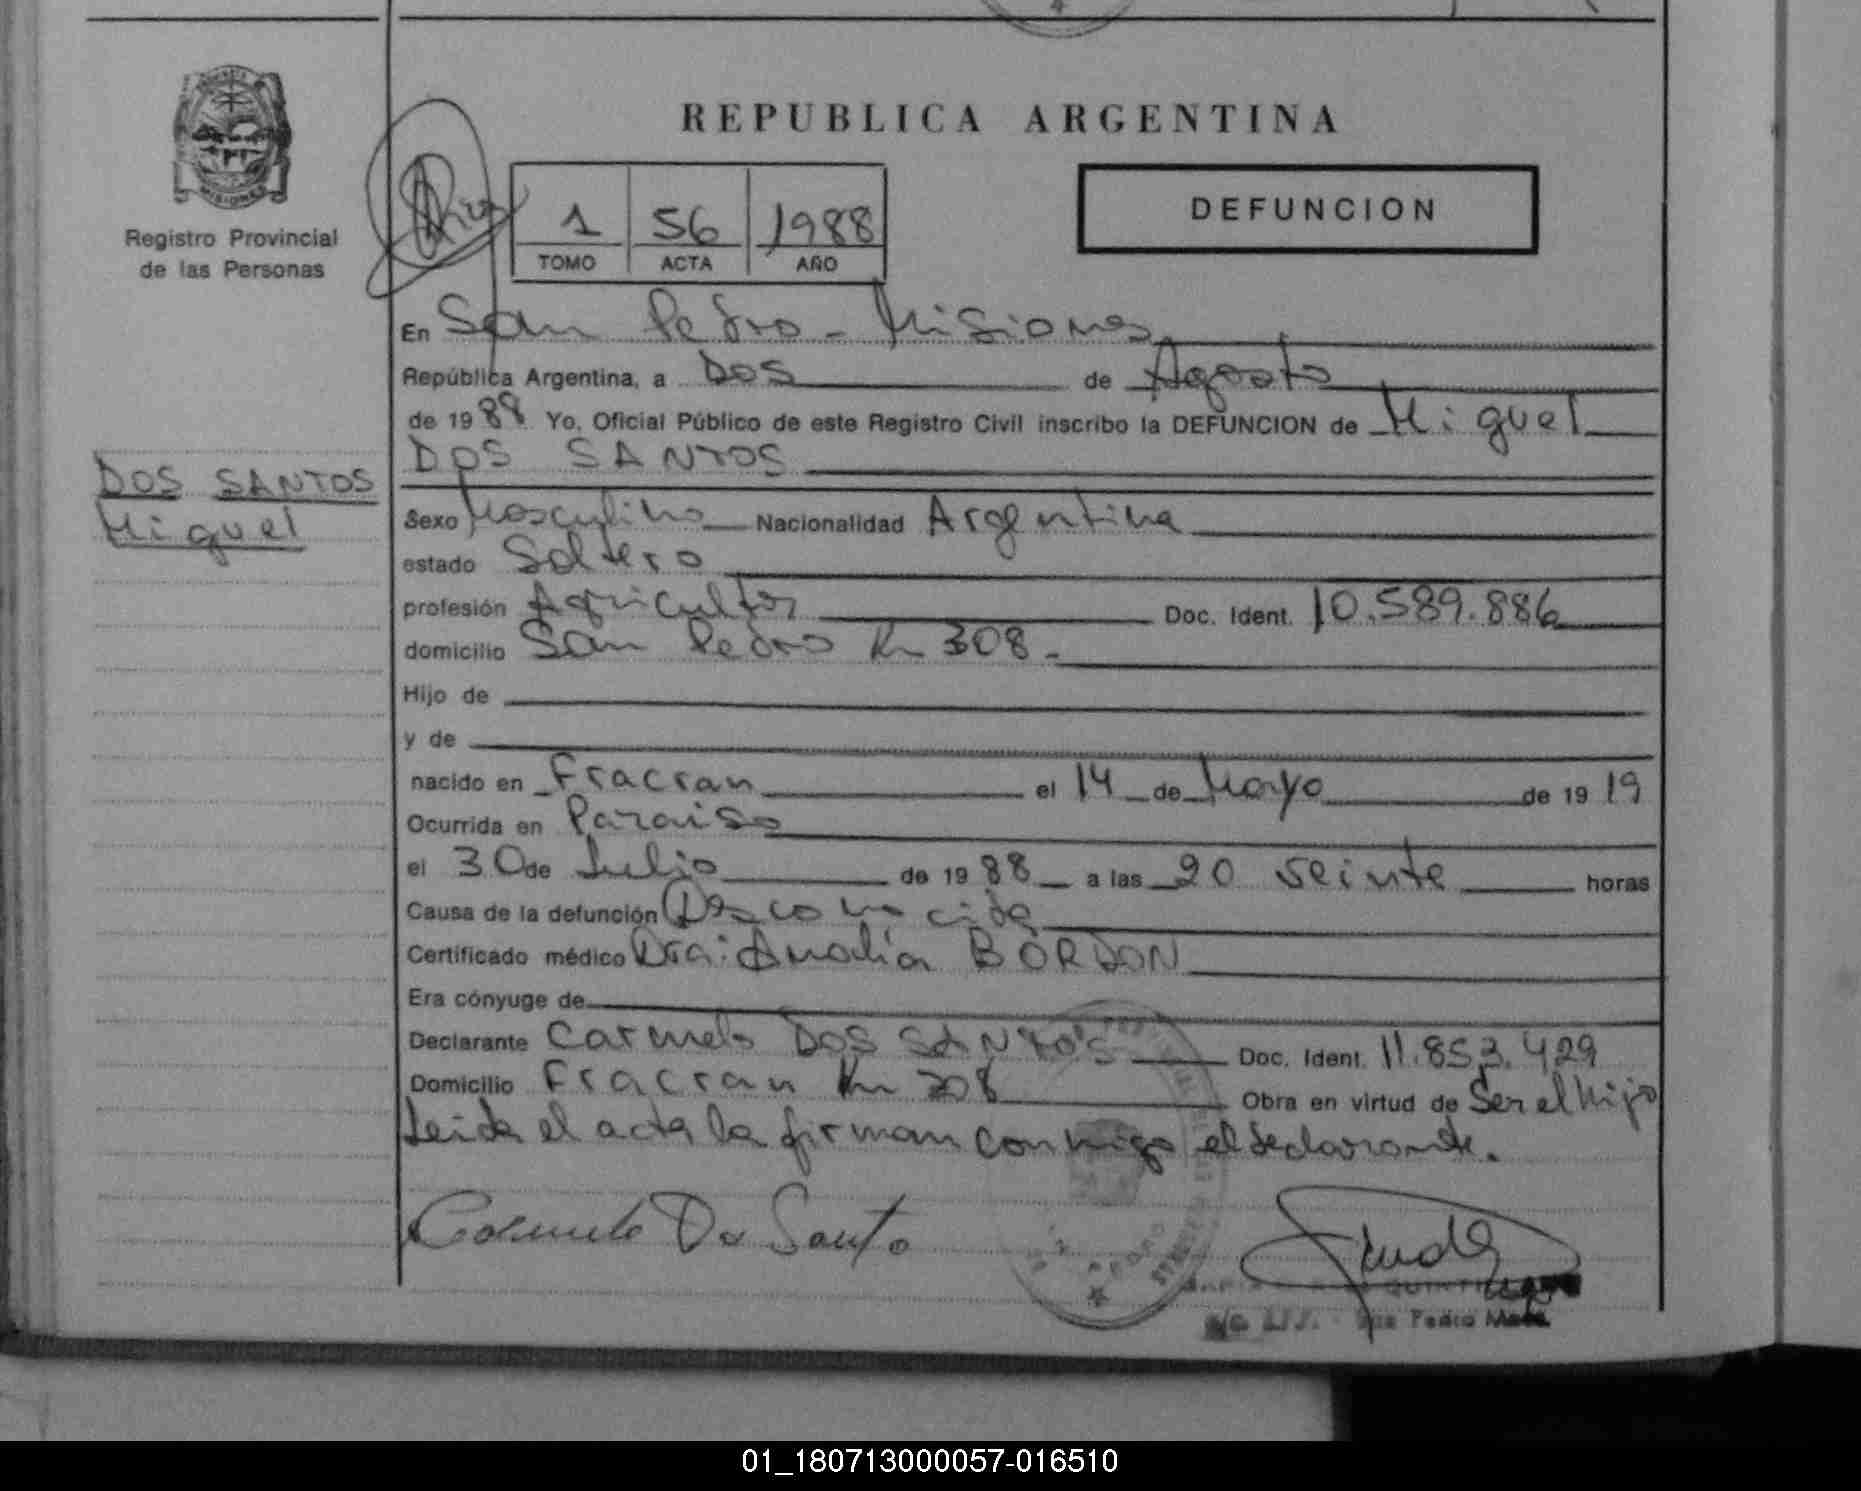 REPUBLICA ARGENTINA
Registro Provincial
de las Personas
1 56 1988
TOMO ACTA AÑO
DEFUNCION
En San Pedro - Misiones
República Argentina, a Dos de Agosto
de 1988 Yo, Oficial Público de este Registro Civil inscribo la DEFUNCION de Miguel
DOS SANTOS
DOS SANTOS
Miguel
Sexo Masculino Nacionalidad Argentina
estado Soltero
profesión Agricultor Doc. Ident. 10.589.886
domicilio San Pedro Km 308.-
Hijo de
y de
nacido en Fracran el 14 de Mayo de 1919
Ocurrida en Paraiso
el 30 de Julio de 1988 a las 20 veinte horas
Causa de la defunción Desconocida
Certificado médico Dra: Amalia BORDON
Era cónyuge de
Declarante Carmelo DOS SANTOS Doc. Ident. 11.853.429
Domicilio Fracran Km 308 Obra en virtud de Ser el hijo
Leida el acta la firman conmigo el declarante.
Carmelo Do Santo
San Pedro Mnes.
01_180713000057-016510